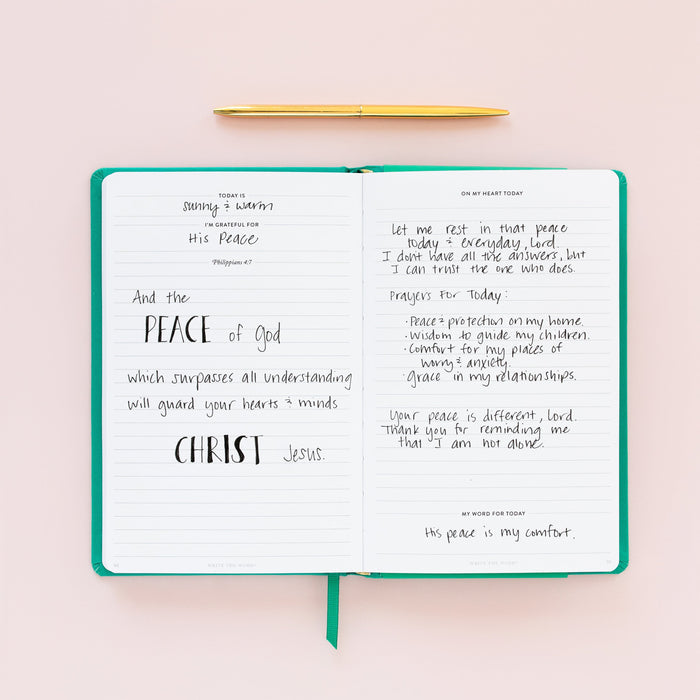 TODAY IS
sunny & warm
I'M GRATEFUL FOR
His Peace
Philippians 4:7
And the
PEACE of God
which surpasses all understanding
will guard your hearts & minds
CHRIST Jesus.
WRITE THE WORD
ON MY HEART TODAY
Let me rest in that peace
today & everyday, Lord.
I dont have all the answers, but
I can trust the one who does.
Prayers For Today:
· Peace & protection on my home.
· Wisdom to guide my children.
· Comfort for my places of
worry & anxiety.
· Grace in my relationships.
Your peace is different, Lord.
Thank you for reminding me
that I am not alone.
MY WORD FOR TODAY
His peace is my comfort.
WRITE THE WORD